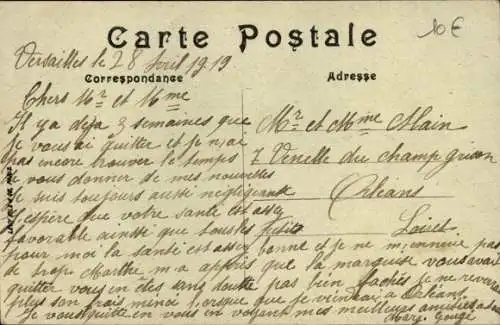 Carte Postale
10€
Versailles le 28 Avril 1919
Correspondance
Adresse
Chers Mr et Mme
Il y a déja 3 semaines que
je vous ai quitter et je n'ai
pas encore trouver le temps
de vous donner de mes nouvelles
Je suis toujours aussi négligeante
J'espère que votre santé est assez
favorable ainsi que tous les petits
pour moi la santé est assez bonne et je ne m'ennuie pas
de trop Marthe m'a appris que la marquise vous avait
quitter vous en êtes sans doutte pas bien fachés je ne reverrai
plus son frais minoi lorsque que je viendrai a Orléans
Je vous quitte en vous en voyant mes meilleurs amitiés
Marg.
Mr et Mme Main
7 Venelle du champ
Orléans
Loiret